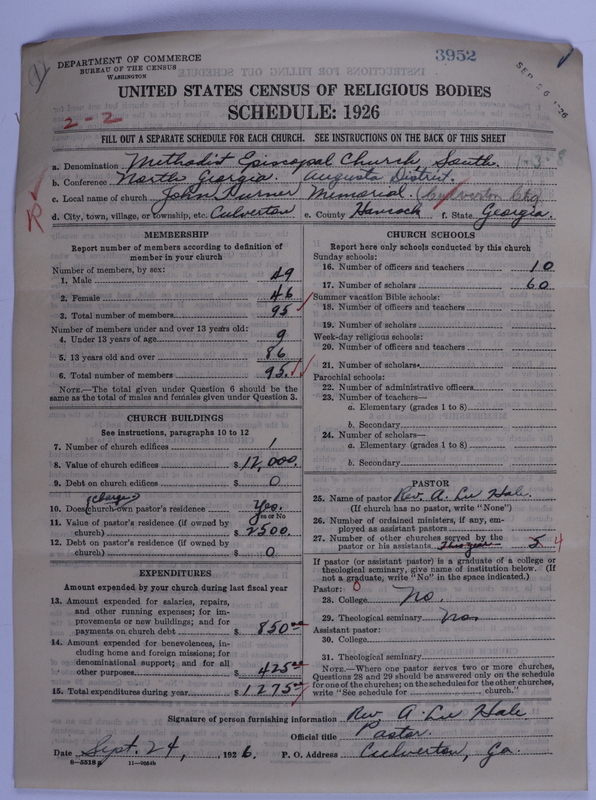 3952
DEPARTMENT OF COMMERCE
BUREAU OF THE CENSUS
WASHINGTON
UNITED STATES CENSUS OF RELIGIOUS BODIES
SCHEDULE: 1926
2-2
FILL OUT A SEPARATE SCHEDULE FOR EACH CHURCH. SEE INSTRUCTIONS ON THE BACK OF THIS SHEET
a. Denomination Methodist Episcopal Church, South. 1-3-8
b. Conference North Georgia. Augusta District.
c. Local name of church John Turner Memorial. (Culverton Chg
d. City, town, village, or township, etc. Culverton e. County Hancock f. State Georgia.
MEMBERSHIP
Report number of members according to definition of
member in your church
Number of members, by sex:
1. Male 49
2. Female 46
3. Total number of members 95
Number of members under and over 13 years old:
4. Under 13 years of age 9
5. 13 years old and over 86
6. Total number of members 95.
NOTE.—The total given under Question 6 should be the
same as the total of males and females given under Question 3.
CHURCH BUILDINGS
See instructions, paragraphs 10 to 12
7. Number of church edifices 1
8. Value of church edifices $12,000.
9. Debt on church edifices $ 0
charge
10. Does church own pastor's residence Yes.
Yes or No
11. Value of pastor's residence (if owned by
church) $2500.
12. Debt on pastor's residence (if owned by
church) $ 0
EXPENDITURES
Amount expended by your church during last fiscal year
13. Amount expended for salaries, repairs,
and other running expenses; for im-
provements or new buildings; and for
payments on church debt $ 850.00
14. Amount expended for benevolences, in-
cluding home and foreign missions; for
denominational support; and for all
other purposes $ 425.00
15. Total expenditures during year $ 1275.00
CHURCH SCHOOLS
Report here only schools conducted by this church
Sunday schools:
16. Number of officers and teachers 10
17. Number of scholars 60
Summer vacation Bible schools:
18. Number of officers and teachers
19. Number of scholars
Week-day religious schools:
20. Number of officers and teachers
21. Number of scholars
Parochial schools:
22. Number of administrative officers
23. Number of teachers—
a. Elementary (grades 1 to 8)
b. Secondary
24. Number of scholars—
a. Elementary (grades 1 to 8)
b. Secondary
PASTOR
25. Name of pastor Rev. A. Lee Hale.
(If church has no pastor, write "None")
26. Number of ordained ministers, if any, em-
ployed as assistant pastors
27. Number of other churches served by the
pastor or his assistants This year 5 4
If pastor (or assistant pastor) is a graduate of a college or
theological seminary, give name of institution below. (If
not a graduate, write "No" in the space indicated.)
Pastor: 0
28. College No.
29. Theological seminary No.
Assistant pastor:
30. College
31. Theological seminary
NOTE.—Where one pastor serves two or more churches,
Questions 28 and 29 should be answered only on the schedule
for one of the churches; on the schedules for the other churches,
write "See schedule for church."
Signature of person furnishing information Rev. A. Lee Hale
Official title Pastor.
Date Sept. 24, 1926. P. O. Address Culverton, Ga.
8-5518 p 11-9664b